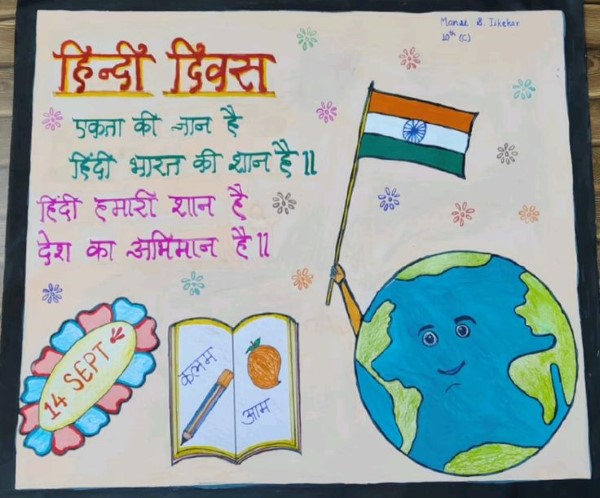 Manas S. Tikekar
10th (C)
हिन्दी दिवस
एकता की जान है
हिंदी भारत की शान है॥
हिंदी हमारी शान है
देश का अभिमान है॥
14 SEPT
कलम
आम